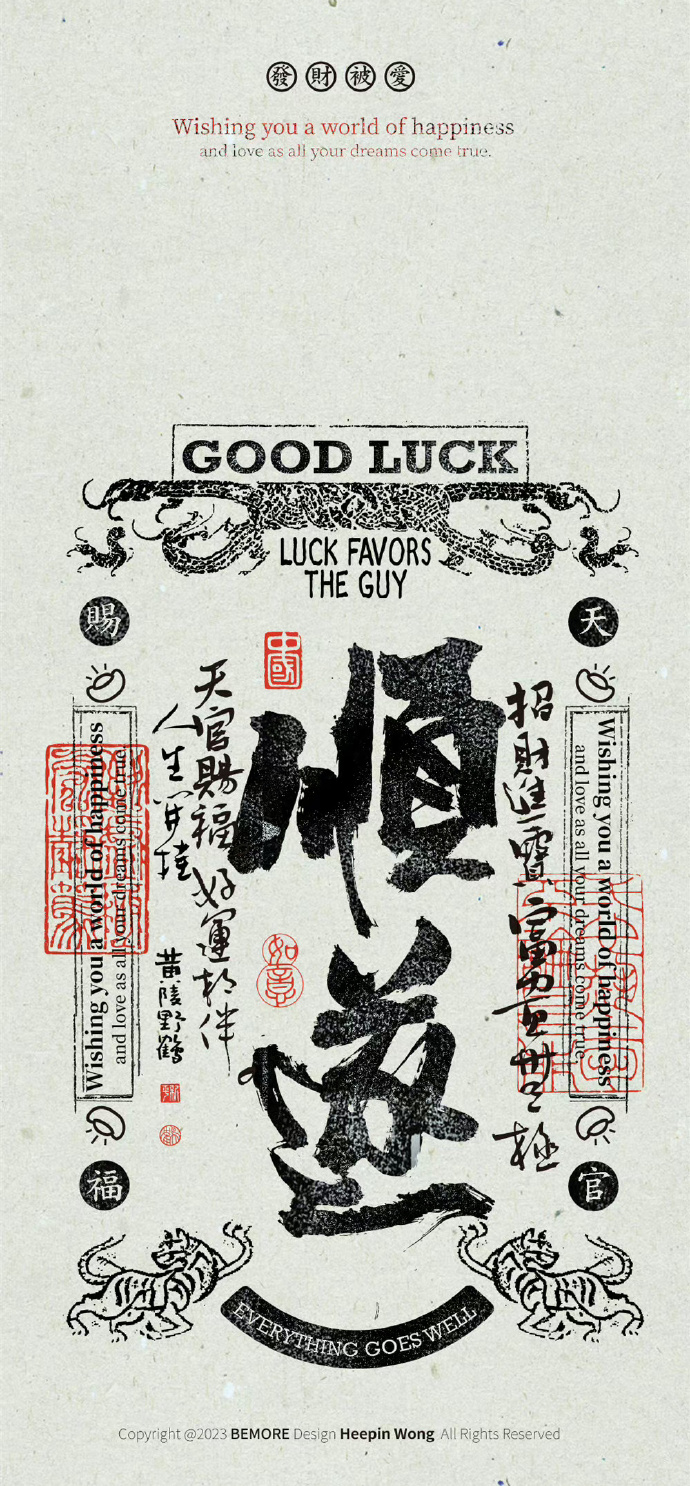 發財被愛
Wishing you a world of happiness
and love as all your dreams come true.
GOOD LUCK
LUCK FAVORS
THE GUY
天
官
賜
福
順遂
招財進寶 富可
極
天官賜福 好運相伴
人生
黃陵野鶴
中國
如意
Wishing you a world of happiness
and love as all your dreams come true.
Wishing you a world of happiness
and love as all your dreams come true.
EVERYTHING GOES WELL
Copyright @2023 BEMORE Design Heepin Wong All Rights Reserved